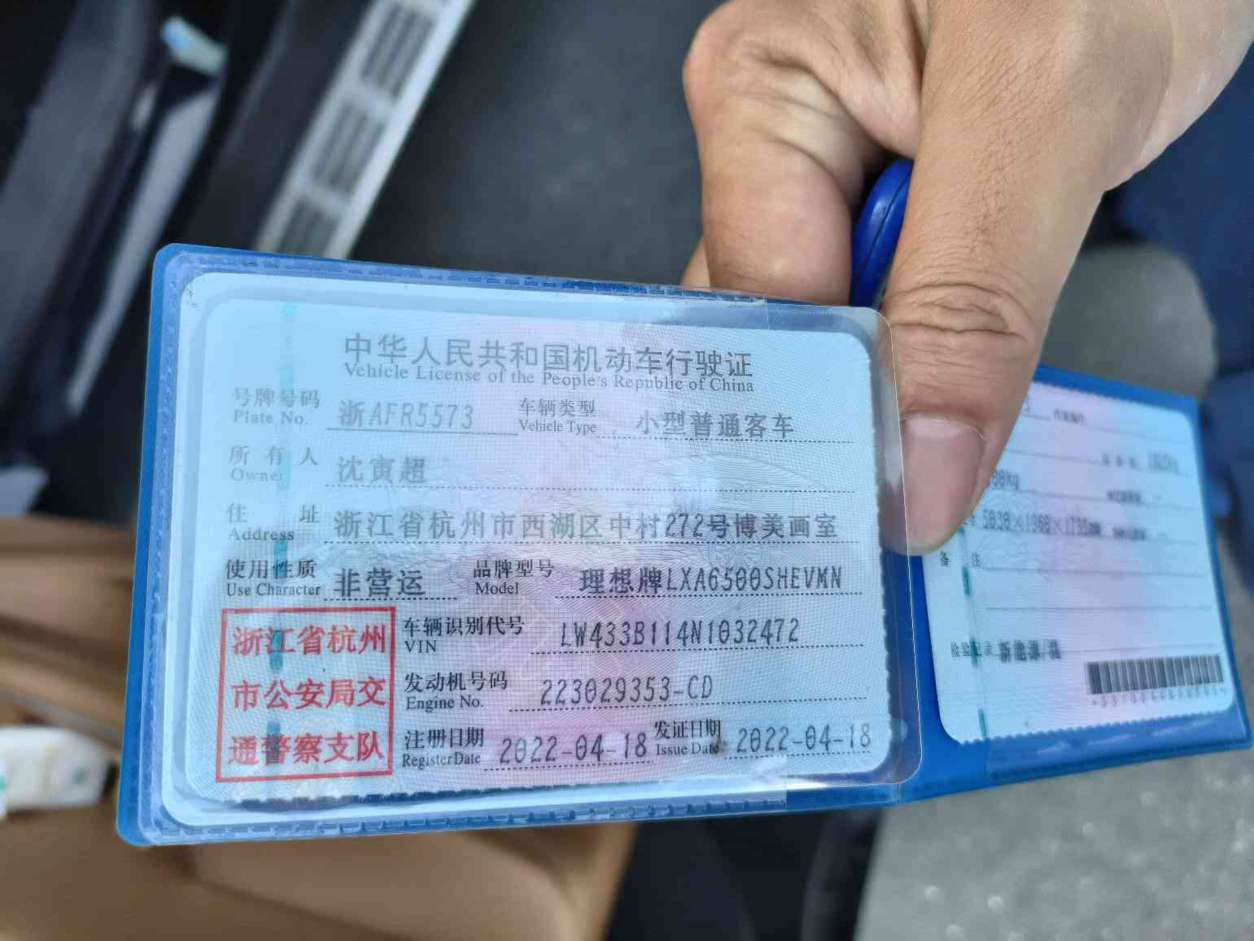 中华人民共和国机动车行驶证
Vehicle License of the People's Republic of China
号牌号码 浙AFR5573 车辆类型 小型普通客车
Plate No. Vehicle Type
所有人 沈寅超
Owner
住址 浙江省杭州市西湖区中村272号博美画室
Address
使用性质 非营运 品牌型号 理想牌LXA6500SHEVMN
Use Character Model
浙江省杭州
市公安局交
通警察支队
车辆识别代号 LW433B114N1032472
VIN
发动机号码 223029353-CD
Engine No.
注册日期 2022-04-18 发证日期 2022-04-18
Register Date Issue Date
备注
检验记录